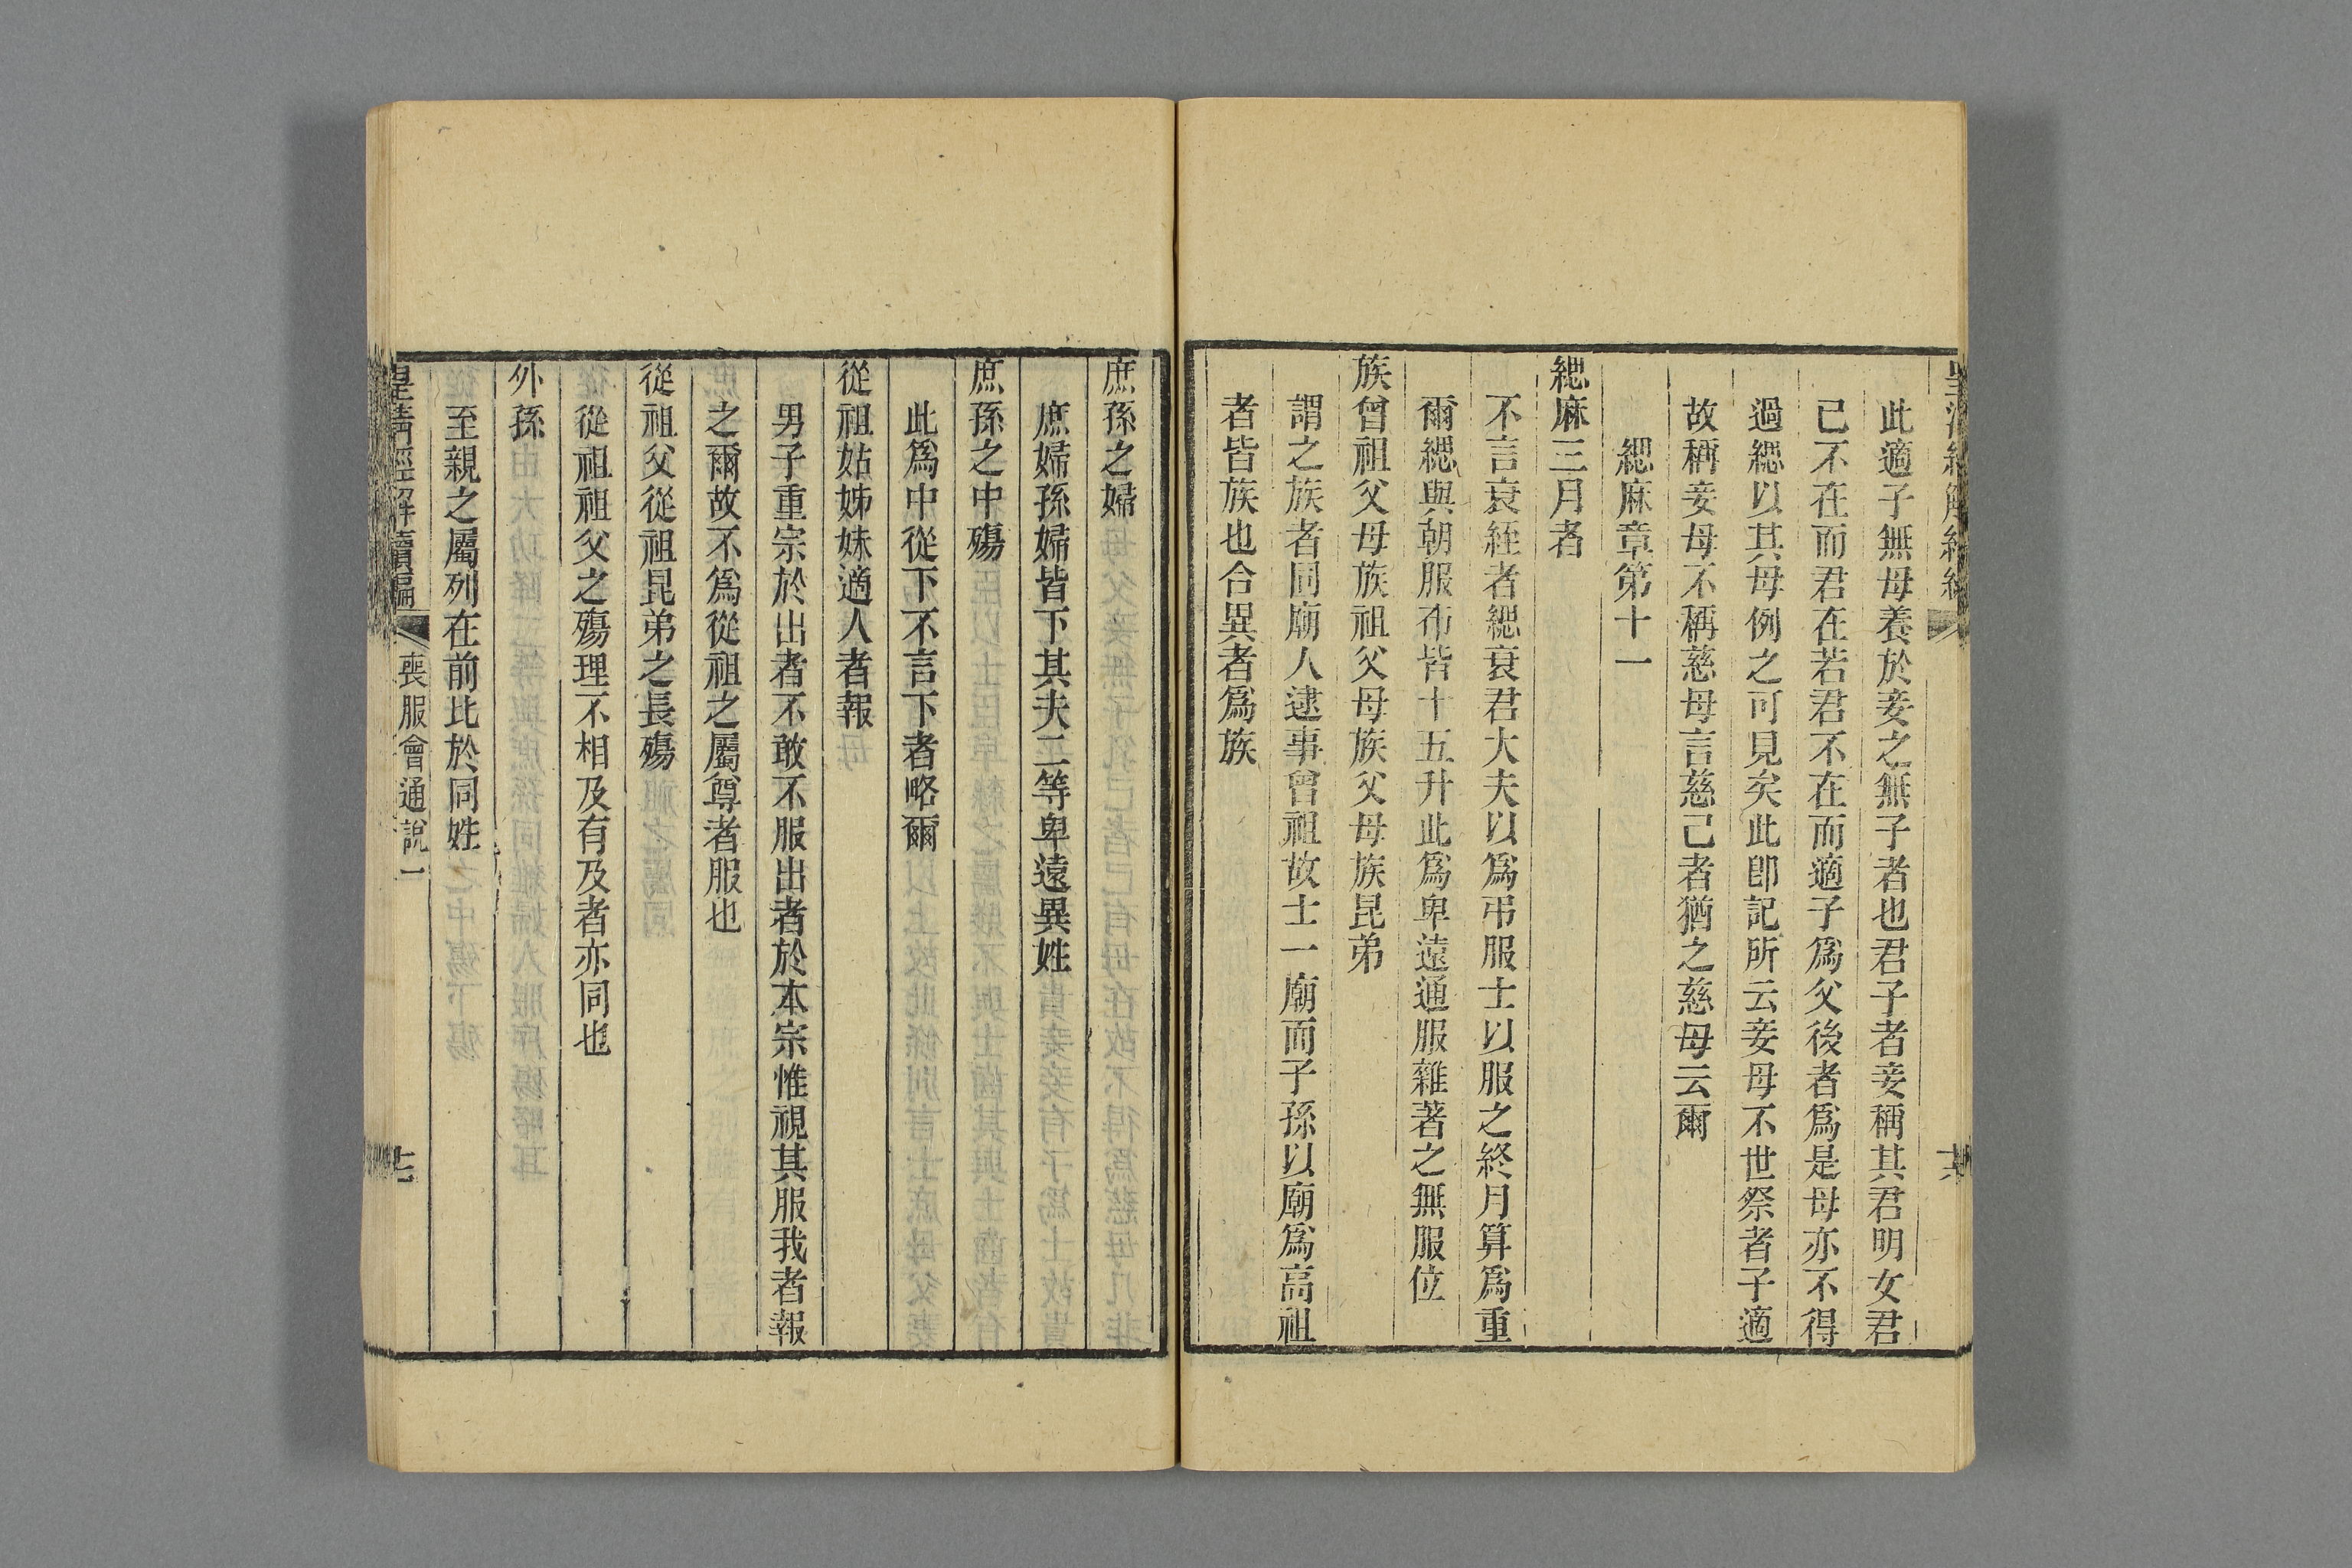 此適子無母養於妾之無子者也君子者妾稱其君明女君
已不在而君在若君不在而適子爲父後者爲是母亦不得
過緦以其母例之可見矣此卽記所云妾母不世祭者子適
故稱妾母不稱慈母言慈己者猶之慈母云爾
緦麻章第十一
緦麻三月者
不言衰絰者緦衰君大夫以爲弔服士以服之終月算爲重
爾緦與朝服布皆十五升此爲卑遠通服雜著之無服位
族曾祖父母族祖父母族父母族昆弟
謂之族者同廟人逮事曾祖故士一廟而子孫以廟爲高祖
者皆族也合異者爲族
庶孫之婦
庶婦孫婦皆下其夫二等卑遠異姓
庶孫之中殤
此爲中從下不言下者略爾
從祖姑姊妹適人者報
男子重宗於出者不敢不服出者於本宗惟視其服我者報
之爾故不爲從祖之屬尊者服也
從祖父從祖昆弟之長殤
從祖祖父之殤理不相及有及者亦同也
外孫
至親之屬列在前比於同姓
皇清經解續編 喪服會通說一 七